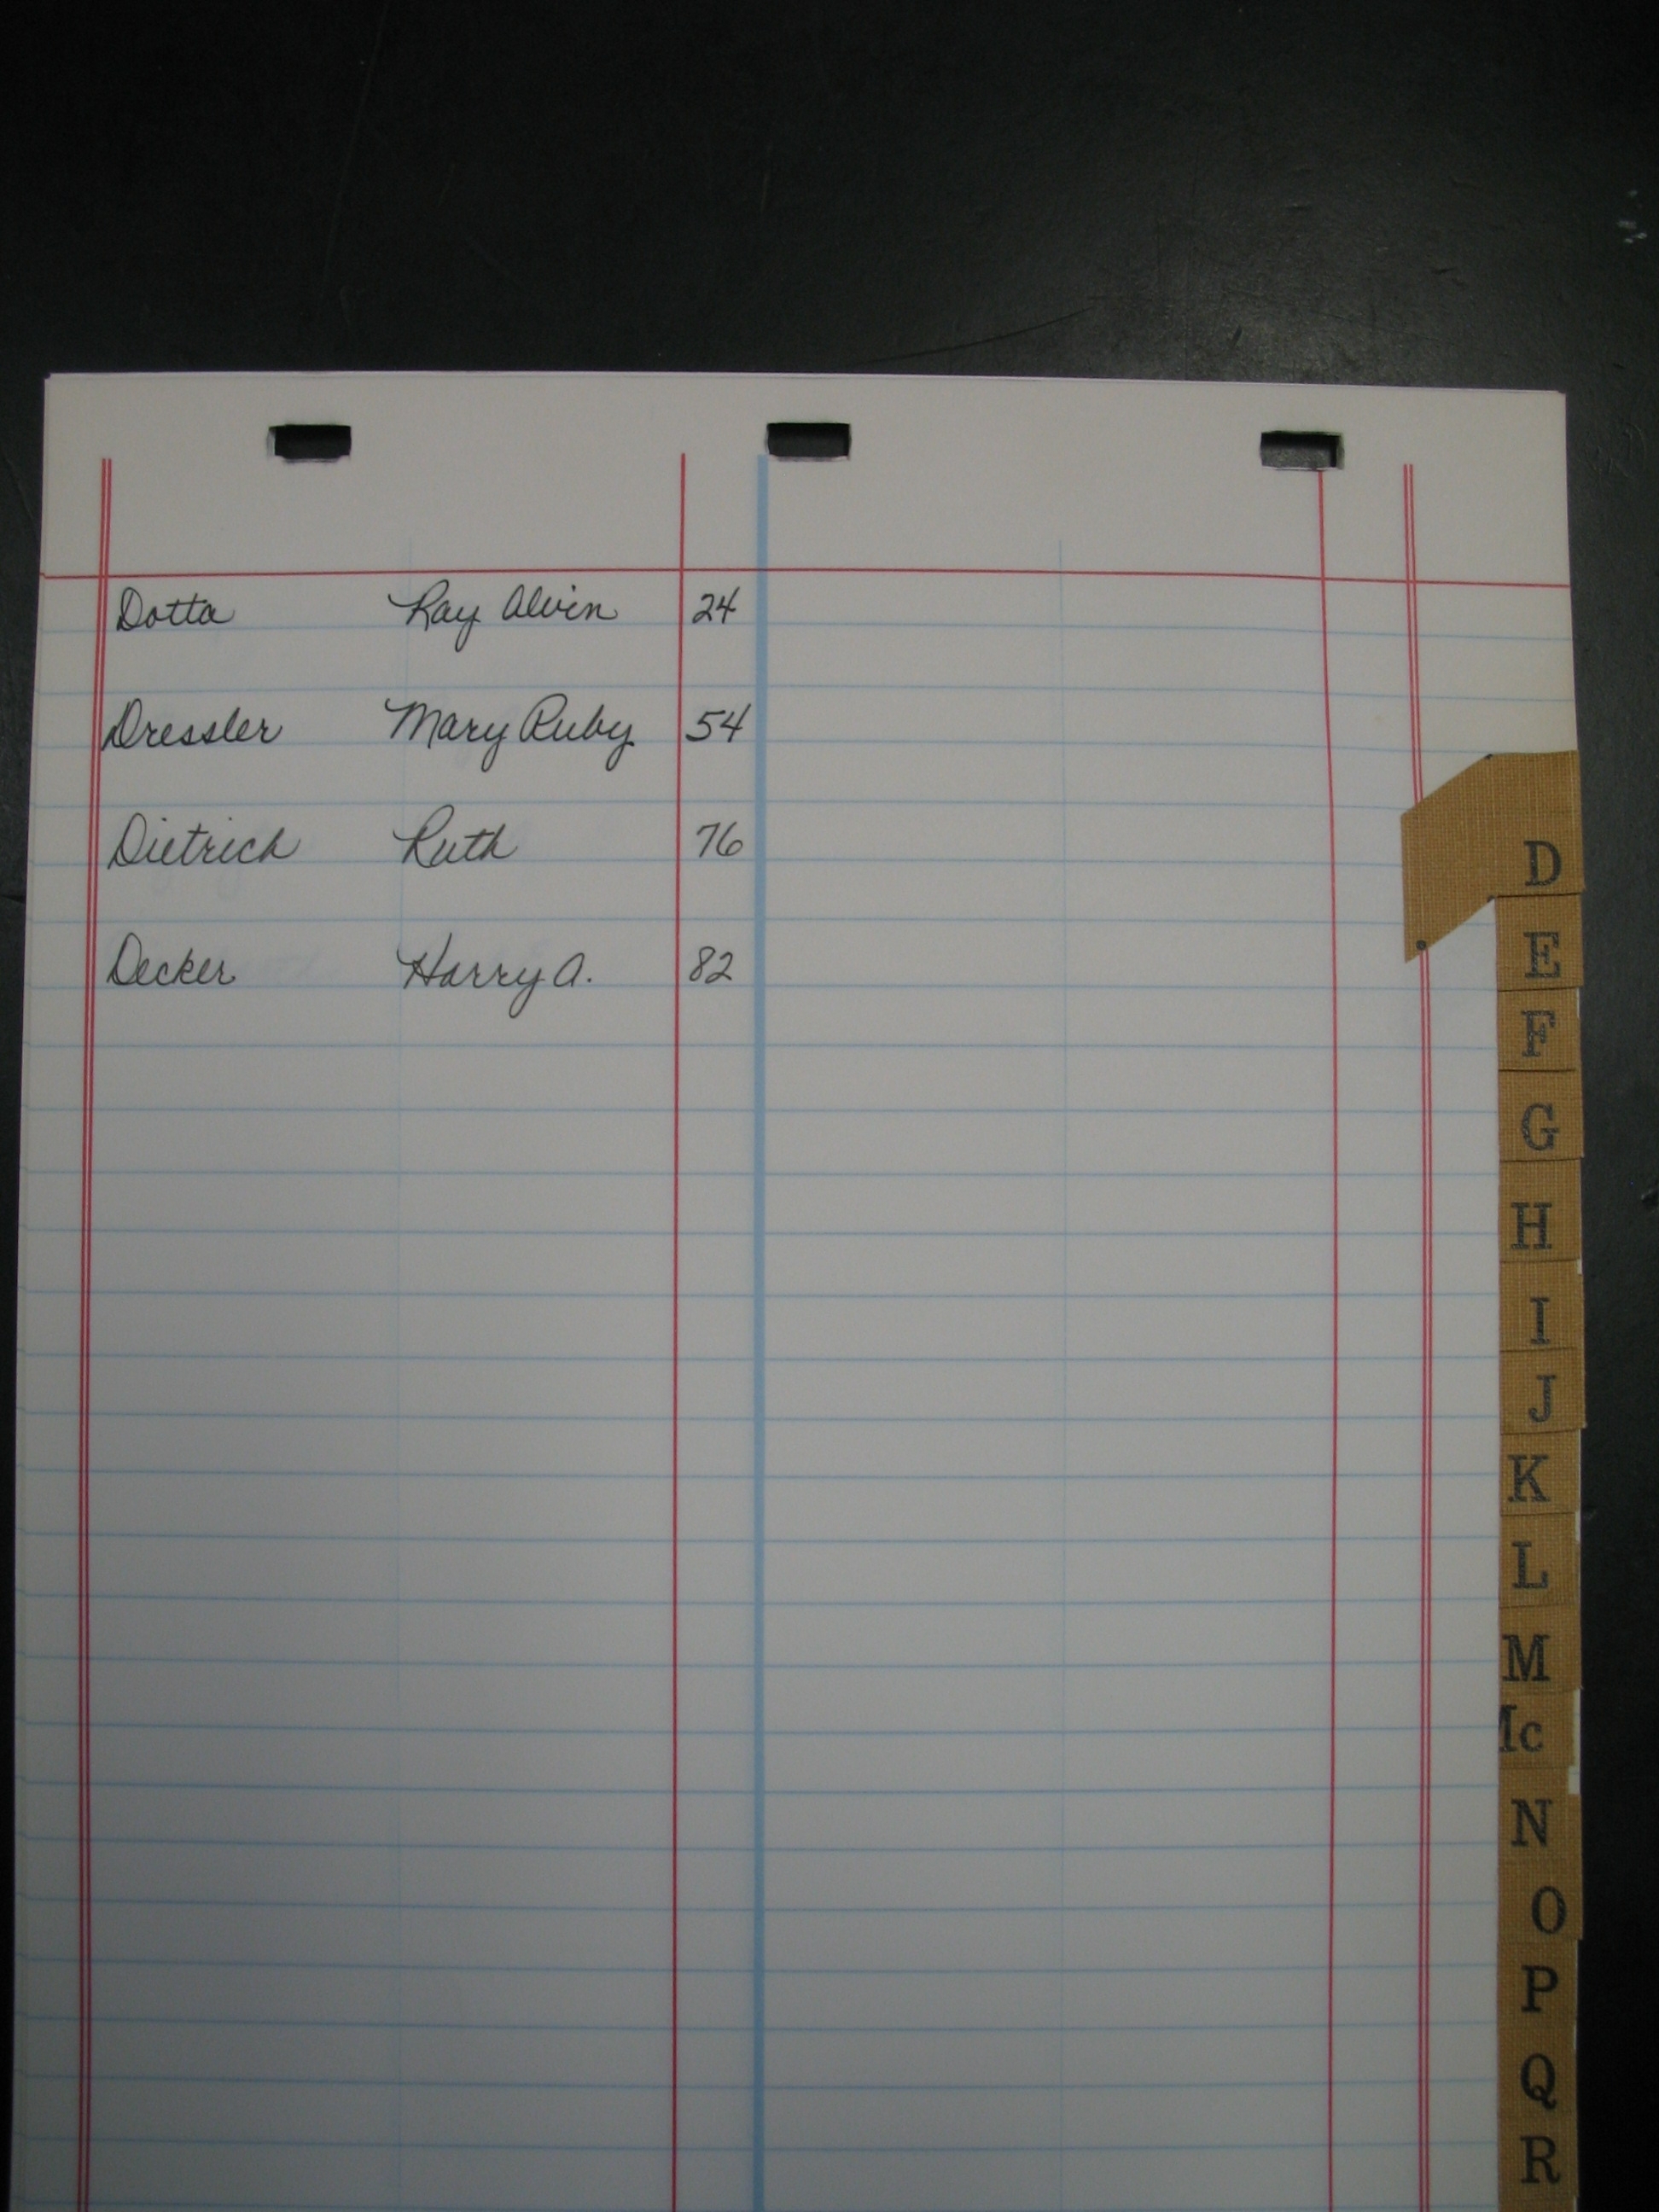 Dotta Ray Alvin 24
Dressler Mary Ruby 54
Dietrich Ruth 76
Decker Harry A. 82
D
E
F
G
H
I
J
K
L
M
Mc
N
O
P
Q
R